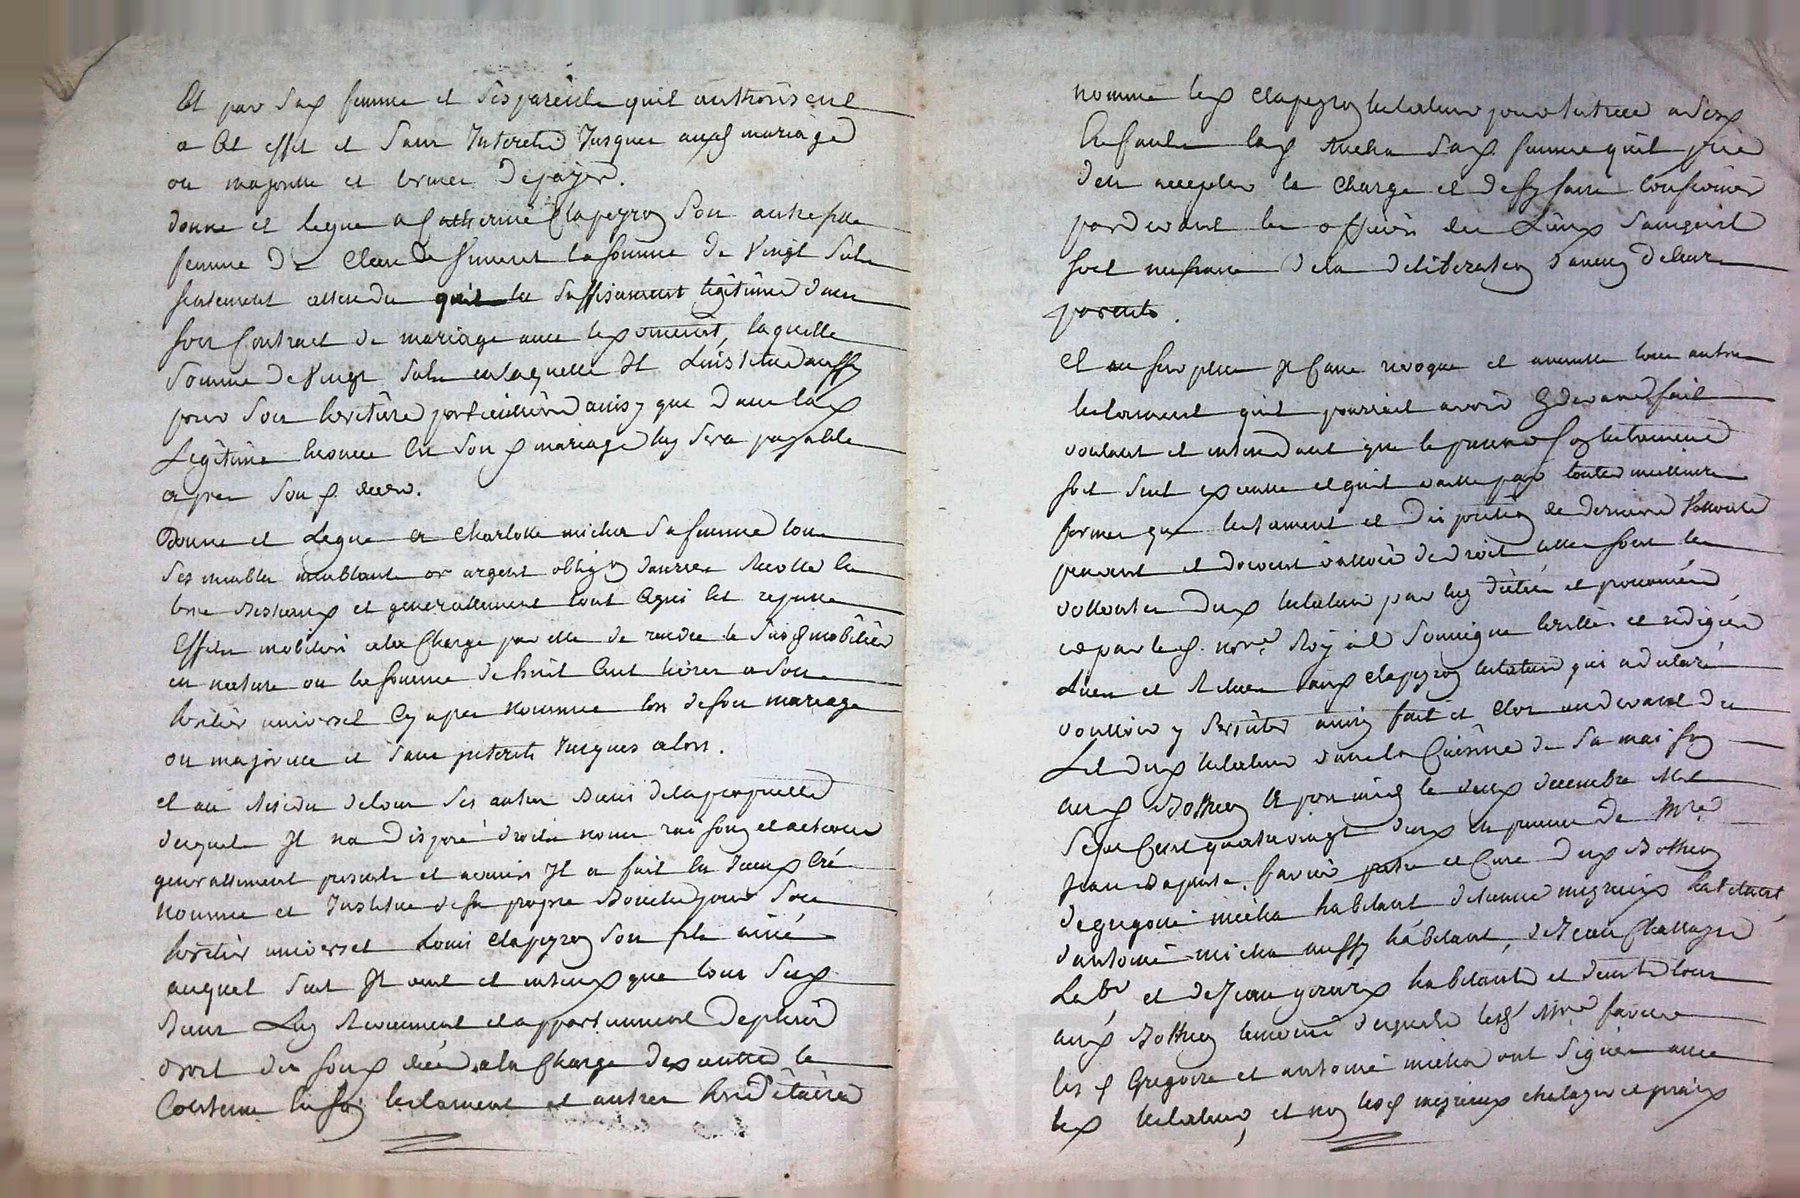 Et par sad femme et ses parents quil authorisent
a Cet effet et Sans Interets Jusques auxd mariage
ou majorité et terme de payer.
donne et legue a Catherine Clapeyron Son autre fille
femme de Claude Simonet la somme de Vingt Sols
seulement attendu quil la suffisament légitimée dans
Son Contract de mariage avec led Simonet, laquelle
Somme de Vingt Sols en laquelle Il Linstitue aussy
pour Son heritière particulière ainsy que dans lad
Légitime donnée En Sond mariage luy Sera payable
apres Sond deces.
Donne et Legue a Charlotte micha Sa femme tous
Ses meubles meublants or argent obligon danrées Recolte
bestiaux et generallement tout Ce qui Est reputé
Effets mobiliers a la Charge par elle de rendre le Susd mobilier
en nature ou la somme de huit Cent livres a Son
heritier universel Cy apres nommé lors de son mariage
ou majorité et Sans jnterets Jusques alors.
et au Residu de tous Ses autres Biens de la pars quelle
desquels Il na disposé droits noms raisons et actions
generallement presents et avenir Il a fait Créé
nommé et Institué de Sa propre Bouche pour Son
heritier universel Louis Clapeyron Son fils ainé
auquel Seul Il veut et entend que tous Sesd
Biens Luy Reviennent et appartiennent de plein
droit des Sond décéd a la Charge dexecuter le
Contenu En Son testament et autres héréditaires
nomme led Clapeyron testateur pour tutrice a Sesd
Enfants lad Micha Sad femme quil prie
den accepter la Charge et de sy faire Confirmer
pardevant les officiers des Lieux Sans quil
Soit necessaire de la deliberation daucun de leurs
parents.
Et au Surplus Il Casse revoque et annulle tous autres
testament quil pourrait avoir Cy devant fait
voulant et entendant que le present Son testament
soit Seul executé et quil vaille par toutes meilleures
formes que testament et disposition de derniere Vollonté
peuvent et doivent valloir de droit telles sont les
vollontés dud testateur par luy dictées et prononcées
et par led. nore Royal Soussigné Ecrittes et redigées
Lues et Relues aud Clapeyron testateur qui a declaré
voulloir y persister ainsy fait et Clos audevant du
Lit dud testateur dans la Cuisine de Sa maison
aud Botheon Ce jourdhuy le deux decembre Mil
Sept Cent quatre vingt deux en presence de Mre
Jean Baptiste favier pretre et Curé dud Botheon
de gregoire micha habitant
dantoine micha aussy habitant, de Jean Chalagne
Labr et de Jean habitants et dautre tous
aud Bothéon temoins desquels lesd Mre favier
lesd Gregoire et antoine micha ont Signés avec
led testateur, et non lesd chalagne et